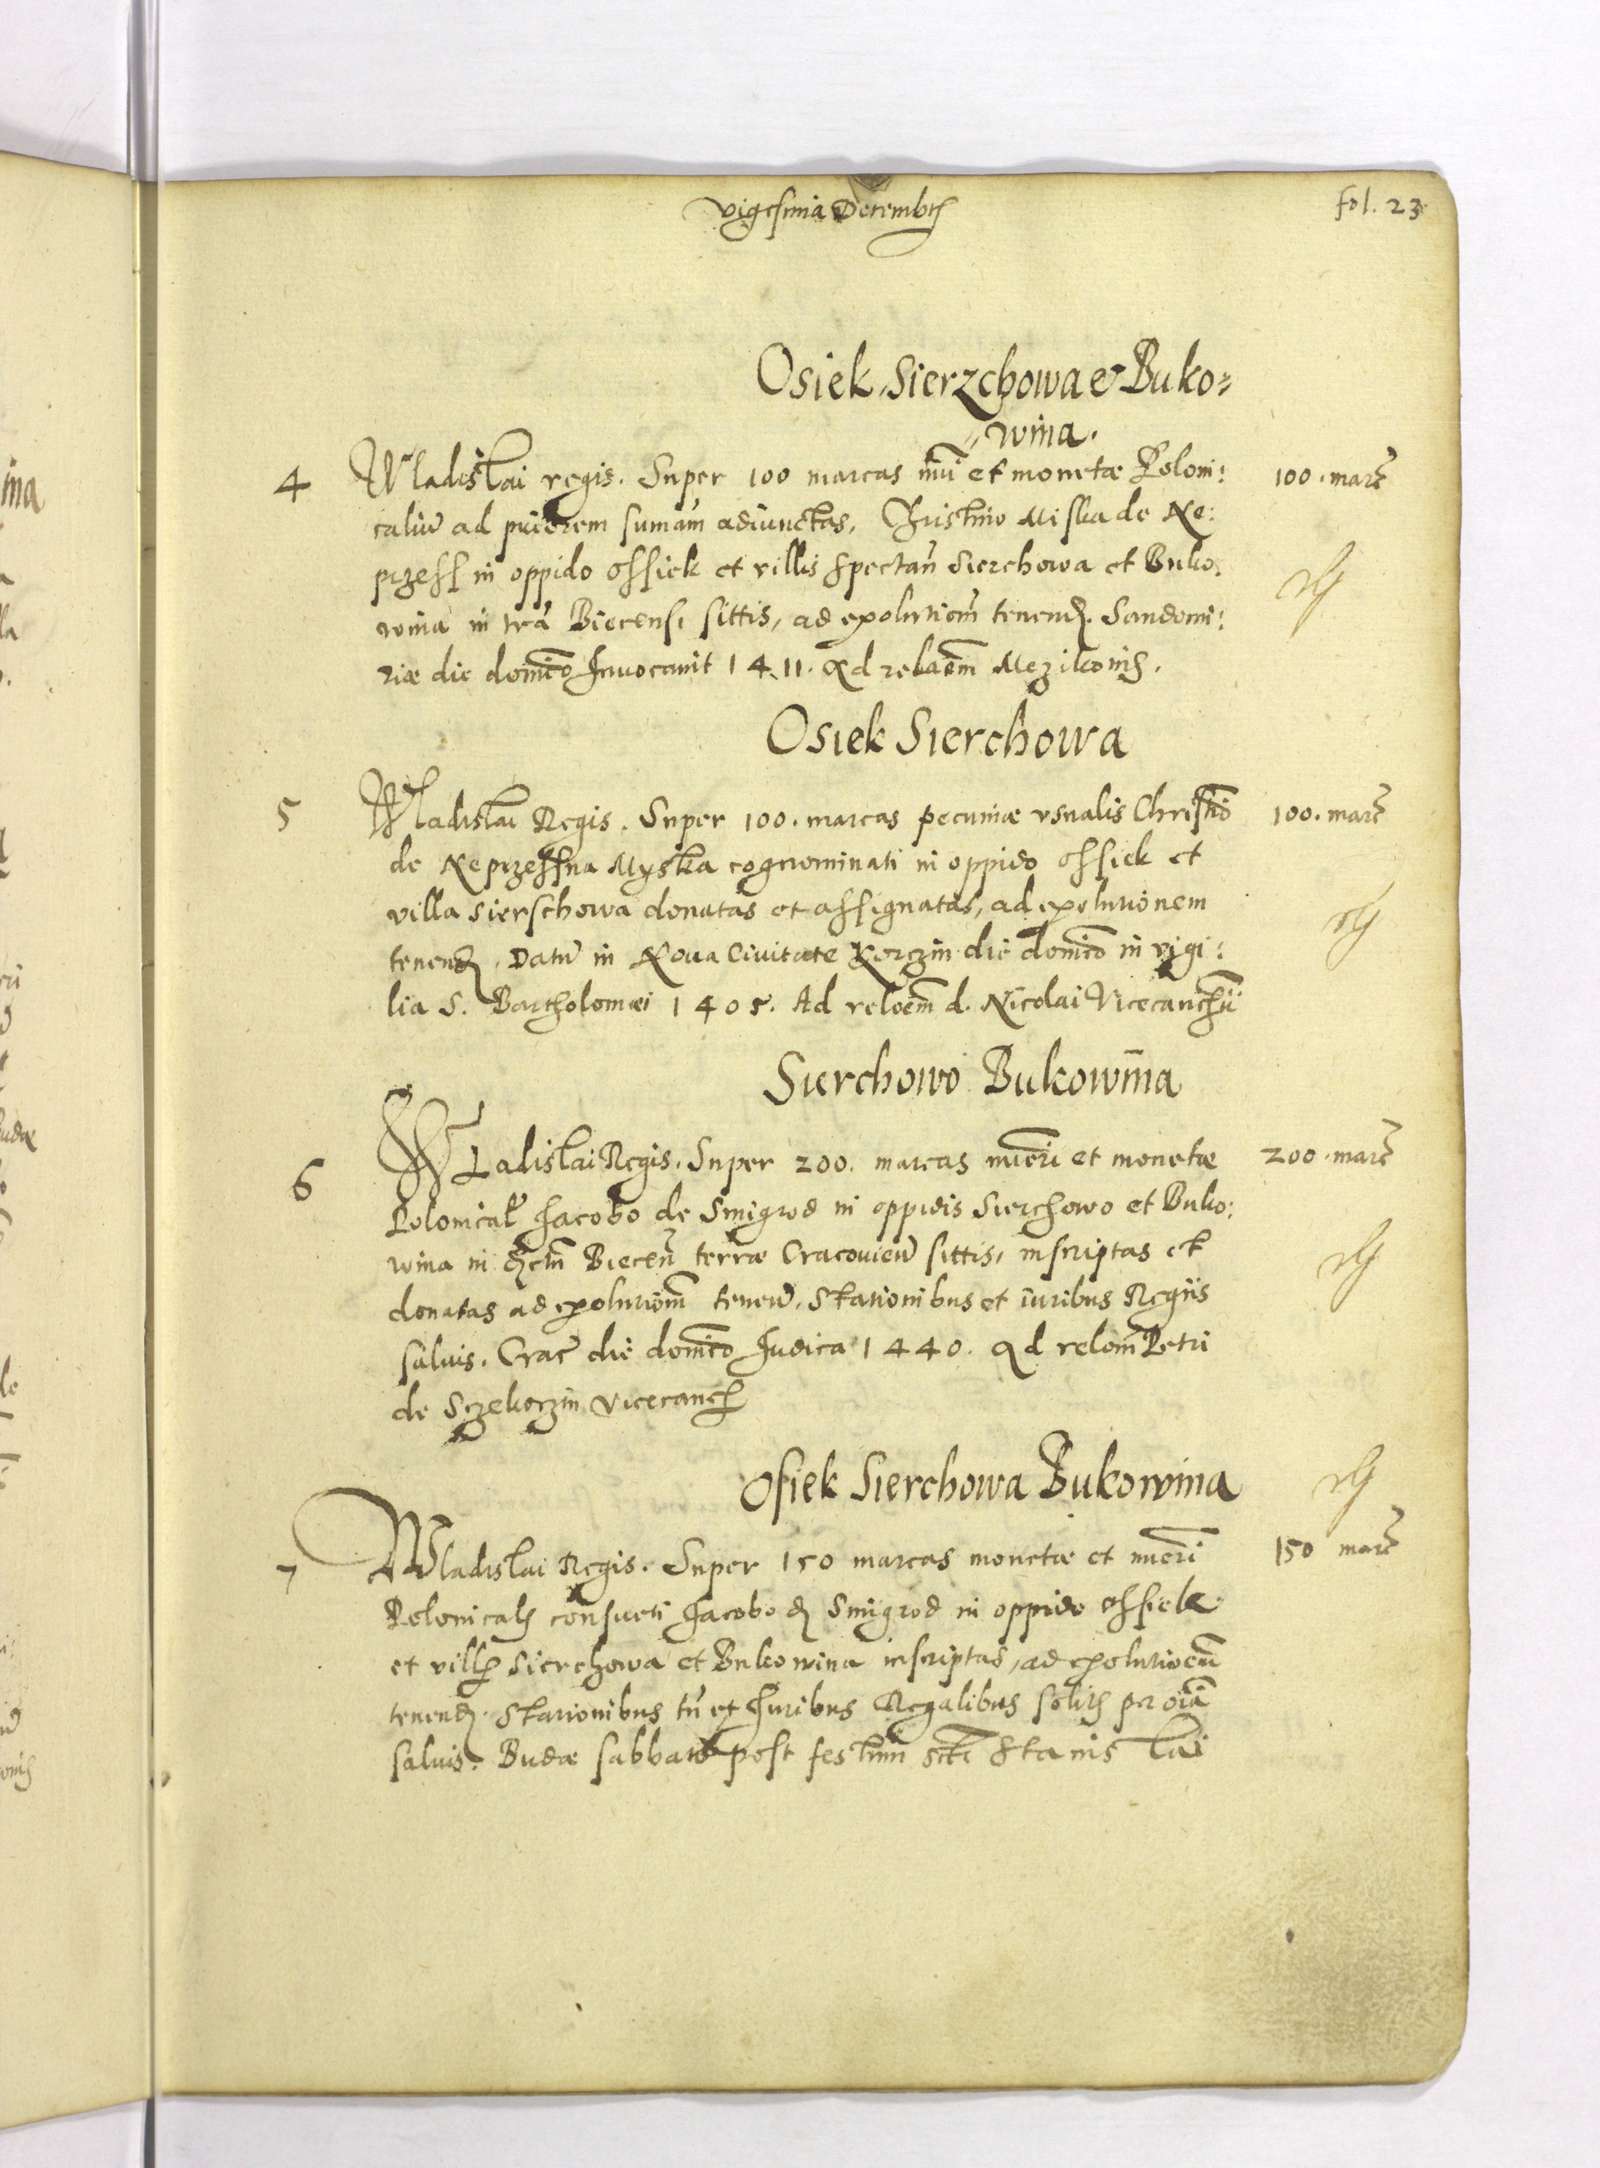 Vigesima Decembris
fol. 23
Osiek, Sierzchowa et Buko=
=wina.
4 Wladislai regis. Super 100 marcas nūi et monetæ Poloni: 100. marc
caliū ad priorem sumām adiunctas, Christino Miska de Ne:
przess in oppido ossiek et villis spectan̄ Sierchowa et Buko:
wina in trā Biecensi sittis, ad exolutiōm tenend. Sandomi:
riæ die domīco Invocavit 1411. Ad relaōem
Osiek Sierchowa
5 Wladislai Regis. Super 100. marcas pecuniæ usualis Christiō 100. marc
de Neprzessna Myska cognominati in oppido ossiek et
villa Sierschowa donatas et assignatas, ad exolutionem
tenend. Datū in Nova Civitate Korczin die domīco in vigi:
lia S. Bartholomæi 1405. Ad reloēm d. Nicolai Vicecanc̄h
Sierchowo Bukowina
6 Wladislai Regis. Super 200. marcas nūeri et monetæ 200. marc
Polonical Jacobo de Smigrod in oppidis Sierchowo et Buko:
wina in Biecen̄ terræ Cracovien̄ sittis, inscriptas et
donatas ad exolutiōm tenen̄. Stationibus et iuribus Regiis
salvis. Crac̄ die domīco Judica 1440. Ad relōm Petri
de Sczekorzin vicecanc̄h
Osiek Sierchowa Bukowina
7 Wladislai Regis. Super 150 marcas monetæ et nūeri 150 marc
Polonicalis consueti Jacobo d Smigrod in oppido ossiek
et villis Sierchowa et Bukowina inscriptas, ad exolutioēm
tenend. Stationibus tn̄ et Juribus Regalibus solitis per oīa
salvis. Budæ sabbato post festum scti Stanislai